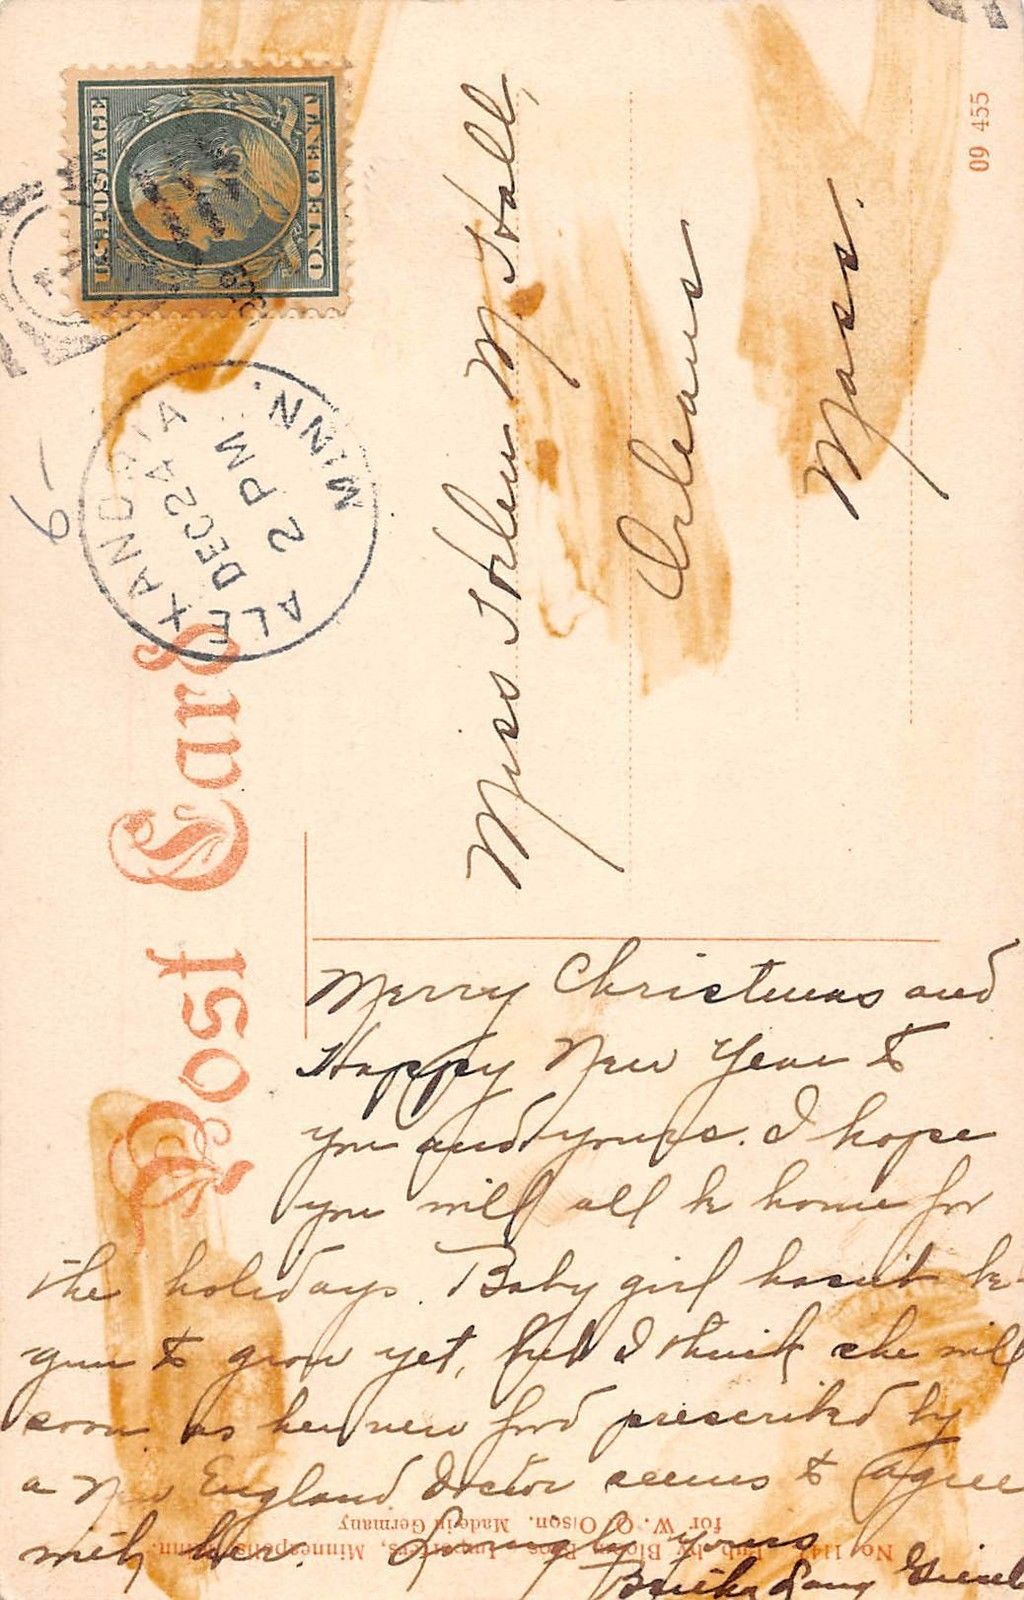 U.S. POSTAGE
ONE CENT
ALEXANDRIA
DEC 24
2 PM
MINN.
6-
Post Card
09 455
Miss Helen M. Hall,
Orleans
Mass.
Merry Christmas and
Happy New Year to
you and yours. I hope
you will all be home for
the holidays. Baby girl hasn't be-
gun to grow yet, but I think she will
soon as her new food prescribed by
a New England Doctor seems to agree
with her. Lovingly yours
No. 114 Pub. by Bloom Bros. Importers, Minneapolis, Minn.
for W. O. Olson. Made in Germany